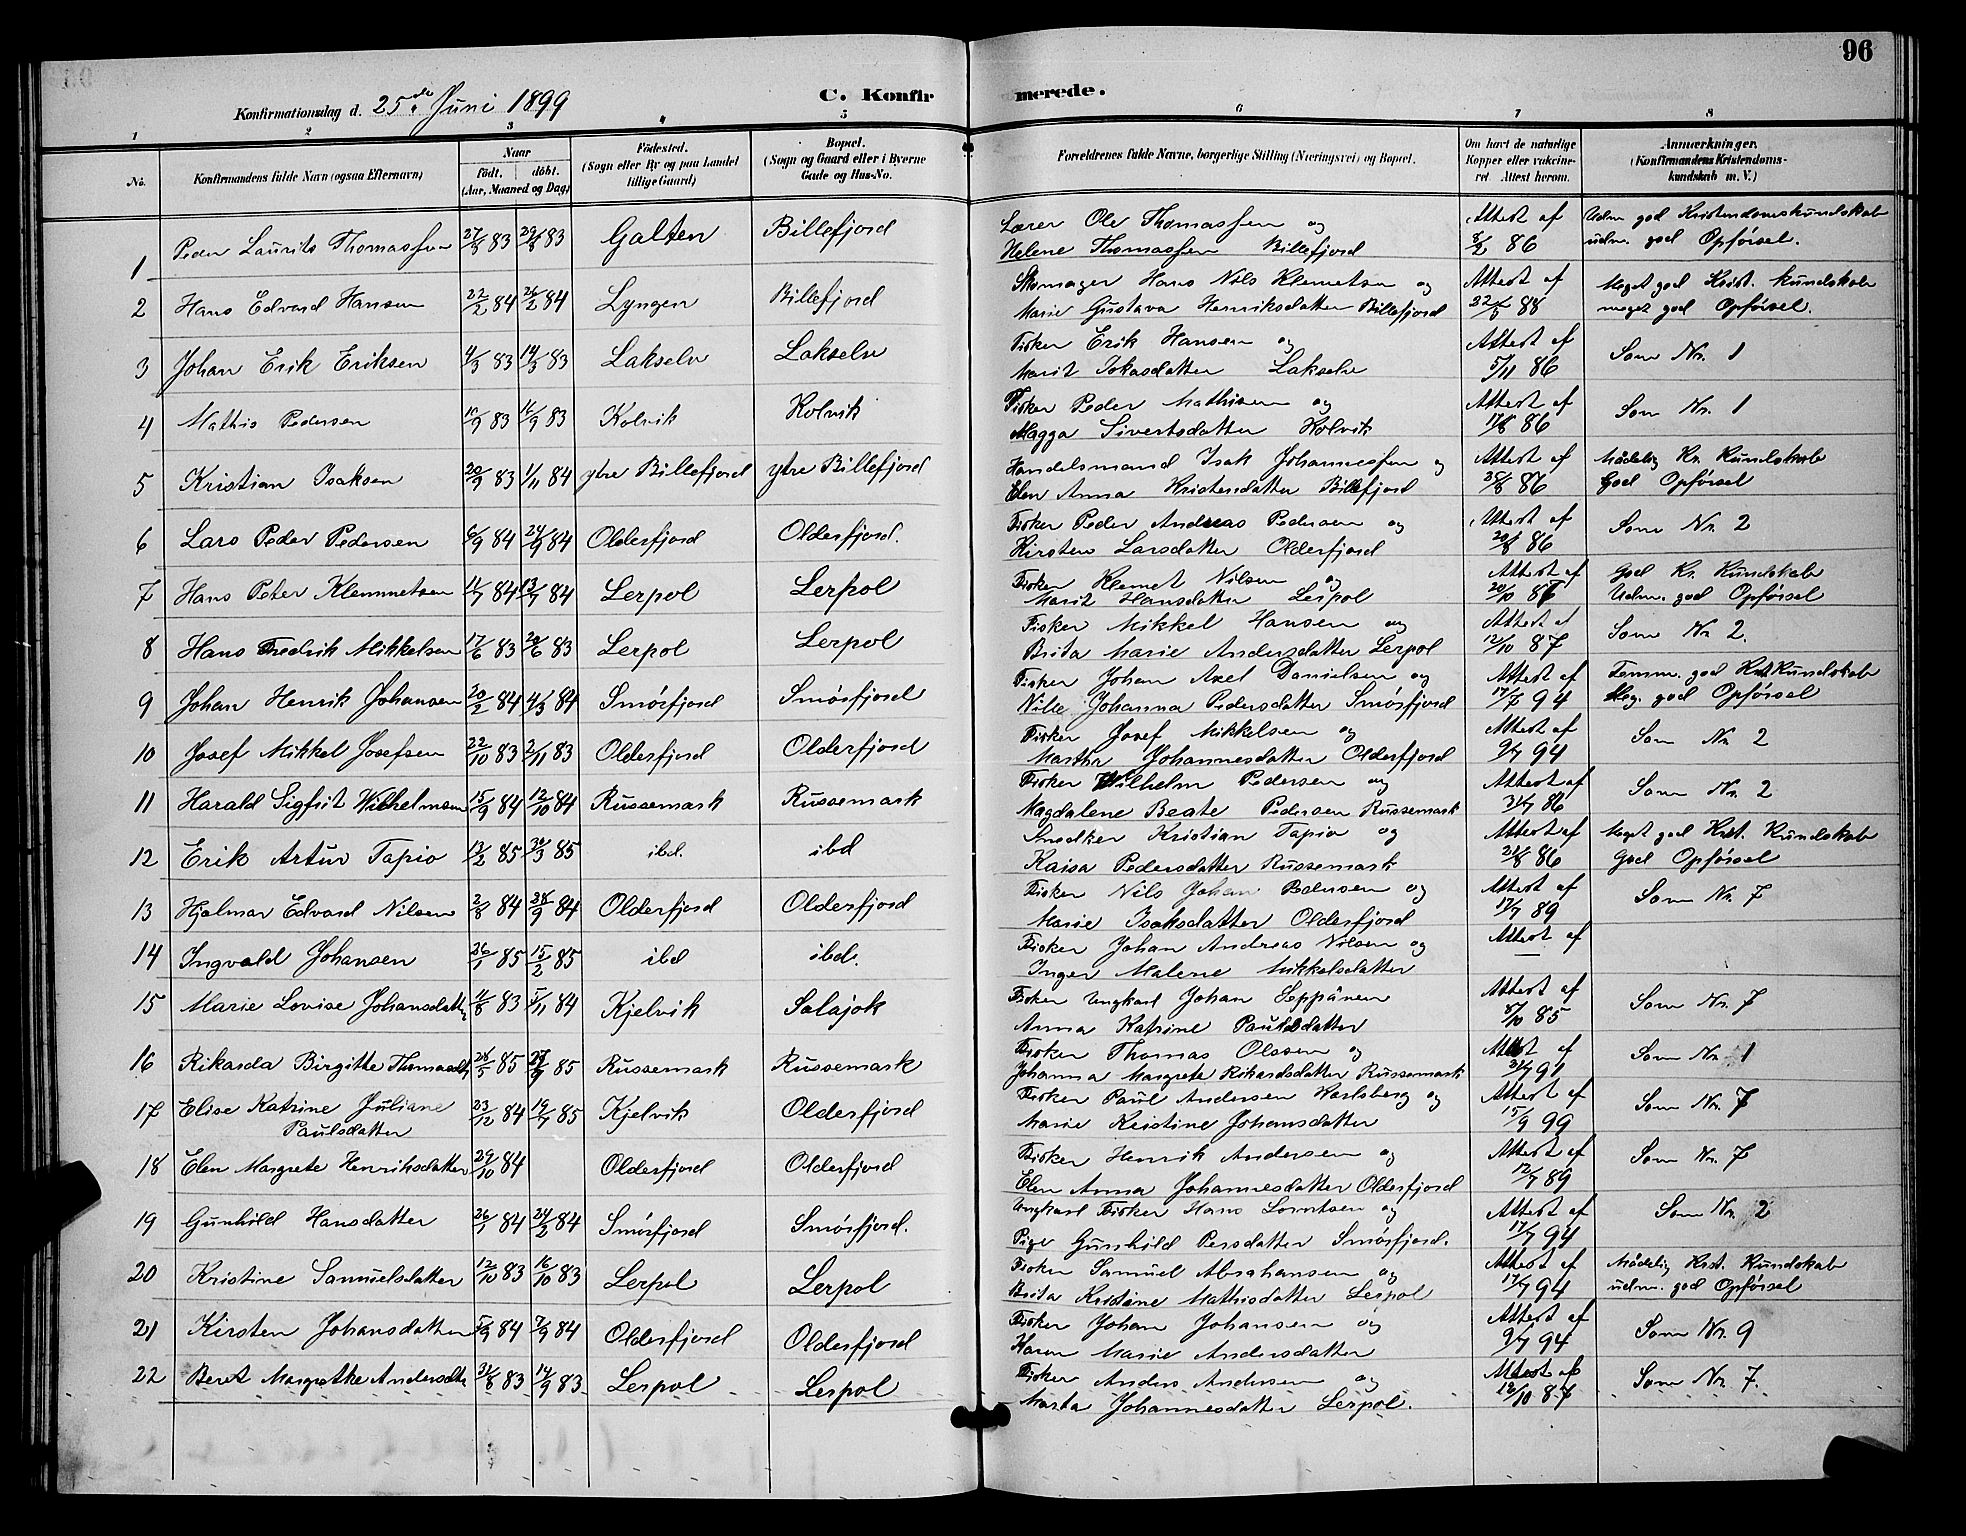 96
Konfirmationsdag d. 25de Juni 1899
C. Konfirmerede.
1 2 3 4 5 6 7 8
No. Konfirmandens fulde Navn (ogsaa Efternavn) Naar født. døbt. (Aar, Maaned og Dag) Fødested. (Sogn eller By og paa Landet tillige Gaard) Bopæl. (Sogn og Gaard eller i Byerne Gade og Hus-No. Forældrenes fulde Navne, borgerlige Stilling (Næringsvei) og Bopæl. Om havt de naturlige Kopper eller vakcineret. Attest herom. Anmærkninger. (Konfirmandens Kristendomskundskab m. V.)
1 Peder Laurits Thomassen 27/8 83 29/8 83 Galten Billefjord Lærer Ole Thomassen og Attest af Udm. god Kristendomskundskab
Helene Thomassen Billefjord 8/2 86 udm. god Opførsel.
2 Hans Edvard Hansen 22/2 84 26/2 84 Lyngen Billefjord Skomager Hans Nils Klemetsen og Attest af Meget god Krist. Kundskab
Marie Gustava Henriksdatter Billefjord 22/5 88 meget god Opførsel.
3 Johan Erik Eriksen 4/3 83 14/3 83 Lakselv Lakselv Fisker Erik Hansen og Attest af Som Nr. 1
Marit Isaksdatter Lakselv 5/11 86
4 Mathis Pedersen 10/9 83 16/9 83 Kolvik Kolvik Fisker Peder Mathisen og Attest af Som Nr. 1
Magga Sivertsdatter Kolvik 17/8 86
5 Kristian Isaksen 20/9 83 1/11 84 ytre Billefjord ytre Billefjord Handelsmand Isak Johannessen og Attest af Mådelig Kr. Kundskab
Elen Anna Kristensdatter Billefjord 25/8 86 God Opførsel
6 Lars Peder Pedersen 6/9 84 24/9 84 Olderfjord Olderfjord. Fisker Peder Andreas Pedersen og Attest af Som Nr. 2
Kirsten Larsdatter Olderfjord 20/8 86
7 Hans Peter Klemmetsen 11/7 84 13/7 84 Lerpol Lerpol Fisker Klemet Nilsen og Attest af God Kr. Kundskab
Marit Hansdatter Lerpol 20/10 86 Udm. god Opførsel
8 Hans Fredrik Mikkelsen 17/6 83 24/6 83 Lerpol Lerpol Fisker Mikkel Hansen og Attest af Som Nr 2.
Brita Marie Andersdatter Lerpol 12/10 87
9 Johan Henrik Johansen 20/2 84 4/3 84 Smørfjord Smørfjord Fisker Johan Axel Danielsen og Attest af Temm. god Krst Kundskab
Johanna Pedersdatter Smørfjord 17/7 94 Meg. god Opførsel
10 Josef Mikkel Josefsen 22/10 83 2/11 83 Olderfjord Olderfjord Fisker Josef Mikkelsen og Attest af Som Nr. 2
Martha Johannesdatter Olderfjord 9/7 94
11 Harald Sigfrit Wilhelmsen 15/9 84 12/10 84 Russemark Russemark Fisker Wilhelm Pedersen og Attest af Som Nr. 2
Magdalene Beate Pedersen Russemark 31/7 86
12 Erik Artur Tapio 13/2 85 30/3 85 ibd. ibd Snedker Kristian Tapio og Attest af Meget god Krst. Kundskab
Kaisa Pedersdatter Russemark 21/8 86 God Opførsel
13 Hjalmar Edvard Nilsen 2/8 84 28/9 84 Olderfjord Olderfjord Fisker Nils Johan Pedersen og Attest af Som Nr. 7
Marie Isaksdatter Olderfjord 17/7 89
14 Ingvald Johansen 26/1 85 15/2 85 ibd ibd. Fisker Johan Andreas Nilsen og Attest af
Inger Malene Mikkelsdatter —
15 Marie Lovise Johansdatter 11/8 83 5/11 84 Kjelvik Salajok Fisker Ungkarl Johan Seppänen Attest af Som Nr. 7
Anna Katrine Paulsdatter 8/10 85
16 Rikarda Birgitte Thomasdtr 28/5 85 85 Russemark Russemark Fisker Thomas Olsen og Attest af Som Nr. 1
Johanna Margrete Rikardsdatter Russemark 31/7 91
17 Elise Katrine Juliane 23/12 84 19/7 85 Kjelvik Olderfjord Fisker Paul Andersen Karlsberg og Attest af Som Nr. 7
Paulsdatter Marie Kristine Johansdatter 15/9 99
18 Elen Margrete Henriksdatter 29/10 84 Olderfjord Olderfjord Fisker Henrik Andersen og Attest af Som Nr. 7
Elen Anna Johannesdatter Olderfjord 12/7 89
19 Gunhild Hansdatter 26/1 84 24/2 84 Smørfjord Smørfjord. Ungkarl Fisker Hans Lorntsen og Attest af Som Nr. 2
Pige Gunhild Persdatter Smørfjord. 17/7 94
20 Kristine Samuelsdatter 12/10 83 16/10 83 Lerpol Lerpol Fisker Samuel Abrahamsen og Attest af Mådelig Krst. Kundskab
Brita Kristine Mathisdatter Lerpol 17/7 94 udm. god Opførsel
21 Kirsten Johansdatter 5/9 84 7/9 84 Olderfjord Olderfjord Fisker Johan Johansen og Attest af Som Nr. 9
Karen Marie Andersdatter 9/7 94
22 Beret Margrethe Andersdtr 31/8 83 14/9 83 Lerpol Lerpol Fisker Anders Andersen og Attest af Som Nr. 7.
Marta Johannesdatter Lerpol. 12/10 87